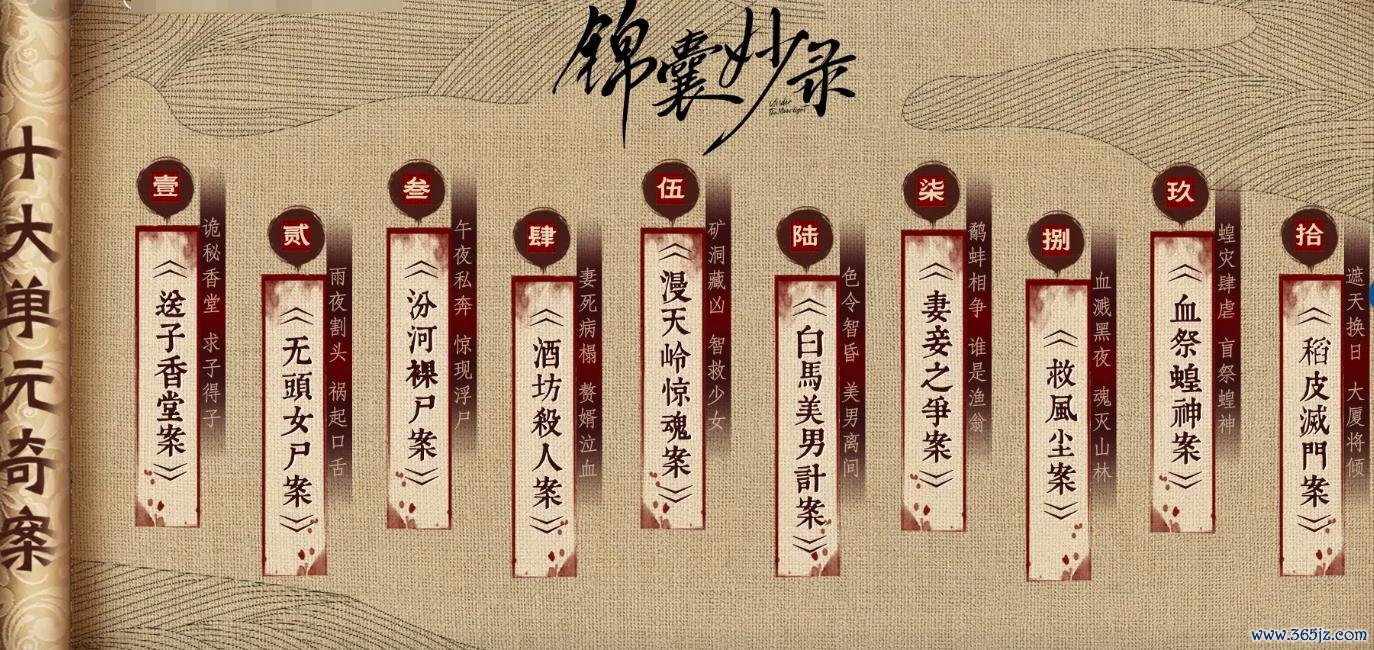 锦囊妙录
十大单元奇案
壹
《送子香堂案》
诡秘香堂 求子得子
贰
《无頭女尸案》
雨夜割头 祸起口舌
叁
《汾河裸尸案》
午夜私奔 惊现浮尸
肆
《酒坊殺人案》
妻死病榻 赘婿泣血
伍
《漫天岭惊魂案》
矿洞藏凶 智救少女
陆
《白馬美男計案》
色令智昏 美男离间
柒
《妻妾之爭案》
鹬蚌相争 谁是渔翁
捌
《救風尘案》
血溅黑夜 魂灭山林
玖
《血祭蝗神案》
蝗灾肆虐 盲祭蝗神
拾
《稻皮滅門案》
遮天换日 大厦将倾
www.365jz.com